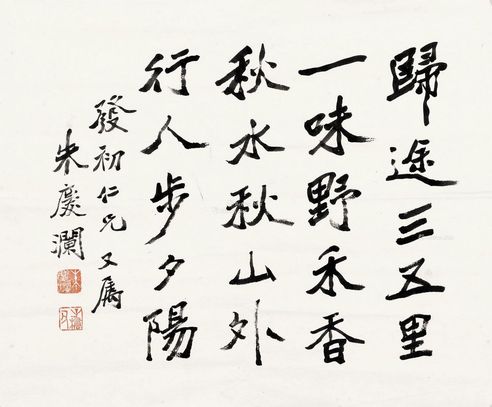 歸途三五里
一味野禾香
秋水秋山外
行人步夕陽
發初仁兄又属
朱慶瀾